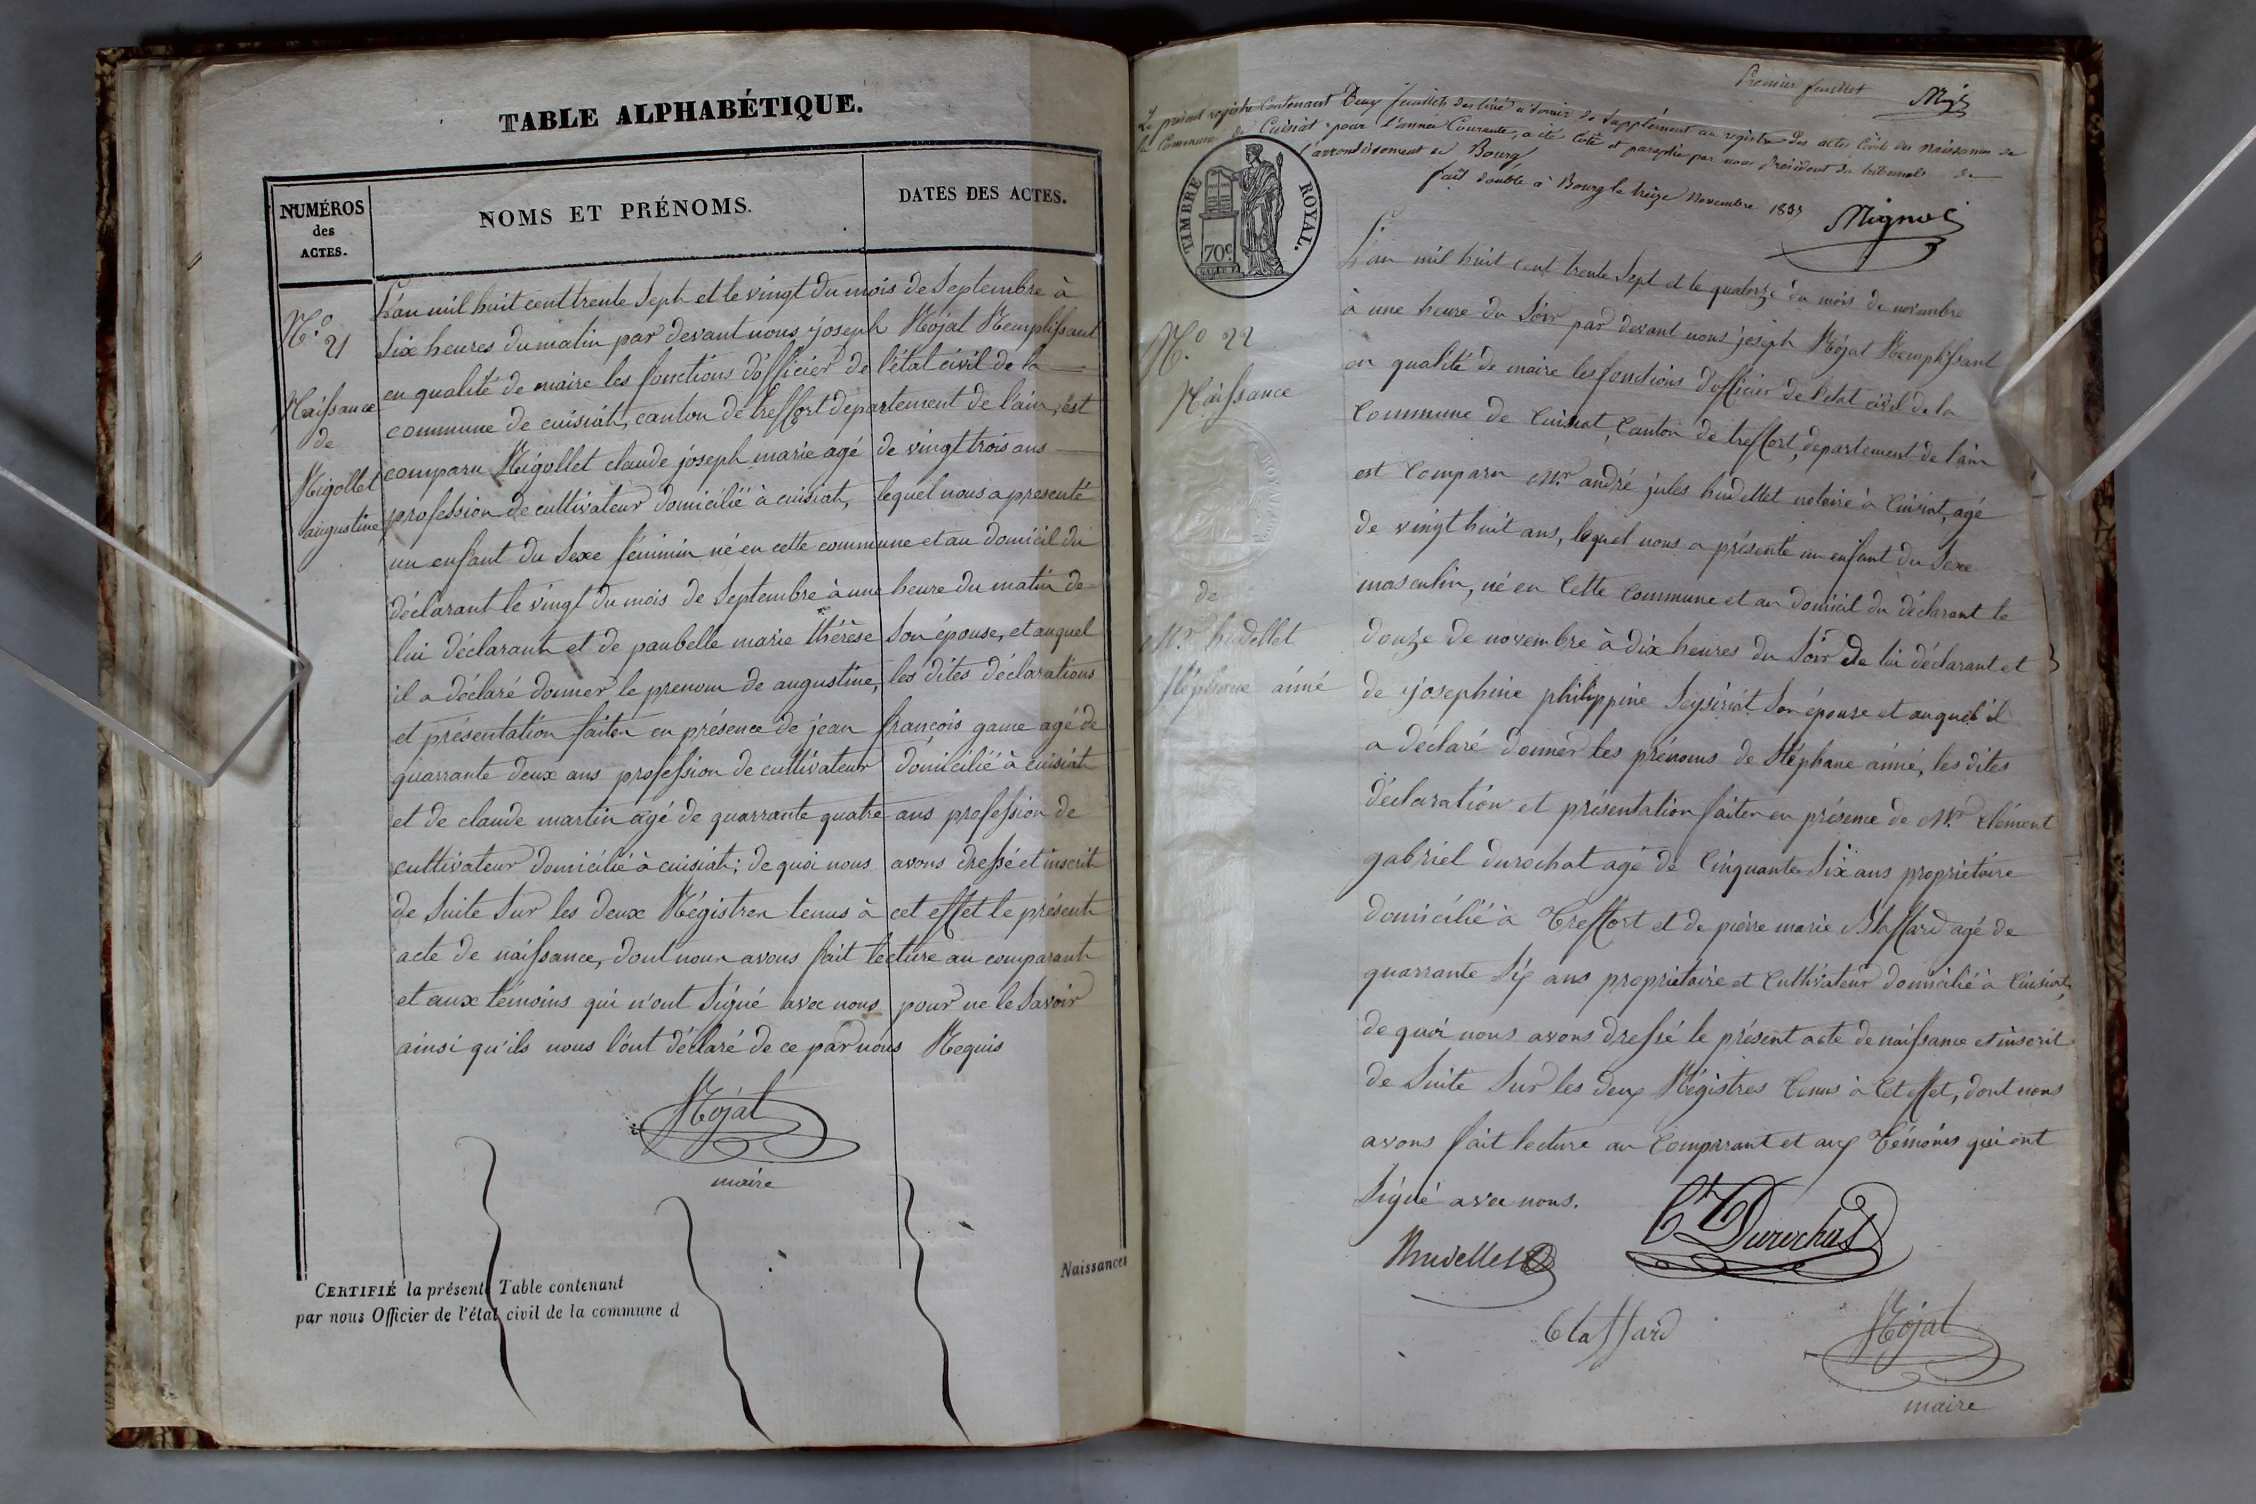 TABLE ALPHABÉTIQUE.
NUMÉROS
des
ACTES.
NOMS ET PRÉNOMS.
DATES DES ACTES.
N.° 21
Naissance
de
Nigollet
augustine
L'an mil huit cent trente Sept et le vingt du mois de Septembre à
Six heures du matin par devant nous joseph Rojat Remplissant
en qualité de maire les fonctions d'officier de l'état civil de la
commune de cuisiat, canton de treffort departement de l'ain, est
comparu Nigollet claude joseph marie agé de vingt trois ans
profession de cultivateur domicilié à cuisiat, lequel nous a presenté
un enfant du Sexe féminin né en cette commune et au domicil du
déclarant le vingt du mois de Septembre à une heure du matin de
lui déclarant et de paubelle marie thérèse Son épouse, et auquel
il a déclaré donner le prenom de augustine, les dites déclarations
et présentation faiten en présence de jean françois game agé de
quarrante deux ans profession de cultivateur domicilié à cuisiat
et de claude martin agé de quarrante quatre ans profession de
cultivateur domicilié à cuisiat; de quoi nous avons dressé et inscrit
de Suite Sur les deux Régistren tenus à cet effet le présent
acte de naissance, dont noun avons fait lecture au comparant
et aux témoins qui n'ont Signé avec nous pour ne le Savoir
ainsi qu'ils nous l'ont déclaré de ce par nous Requis
Rojat
maire
CERTIFIÉ la présente Table contenant
par nous Officier de l'état civil de la commune d
Naissances
Premier feuillet
Le présent registre Contenant Deux feuillets destiné à Servir de Supplément au registre des actes Civils des Naissances de
la Commune de Cuisiat pour l'année Courante, a été Coté et paraphé par nous Président du tribunal de
l'arrondissement de Bourg
fait double à Bourg le treize Novembre 1837
Mignot
TIMBRE ROYAL.
70c
N.° 22
Naissance
de
Mr. hudellet
Stéphane aimé
L'an mil huit cent trente Sept et le quatorze du mois de novembre
à une heure du Soir par devant nous joseph Rojat Remplissant
en qualité de maire les fonctions d'officier de l'etat civil de la
Commune de Cuisiat, Canton de treffort, departement de l'ain
est Comparu Mr. andré jules hudellet notaire à Cuisiat, agé
de vingt huit ans, lequel nous a présenté un enfant du Sexe
masculin, né en Cette Commune et au domicil du déclarant le
douze de novembre à dix heures du Soir de lui déclarant et
de josephine philippine Seysiriat Son épouse et auquel il
a déclaré donner les prénoms de Stéphane aimé, les dites
déclaration et présentation faiten en présence de Mr. clément
gabriel durochat agé de Cinquante Six ans propriétaire
domicilié à Treffort et de pierre marie Blaffard agé de
quarrante Six ans propriétaire et Cultivateur domicilié à Cuisiat,
de quoi nous avons dressé le présent acte de naissance et inscrit
de Suite Sur les deux Régistres tenus à Cet effet, dont nous
avons fait lecture au Comparant et aux Témoins qui ont
Signé avec nous.
Hudellet
Durochat
Blaffard
Rojat
maire